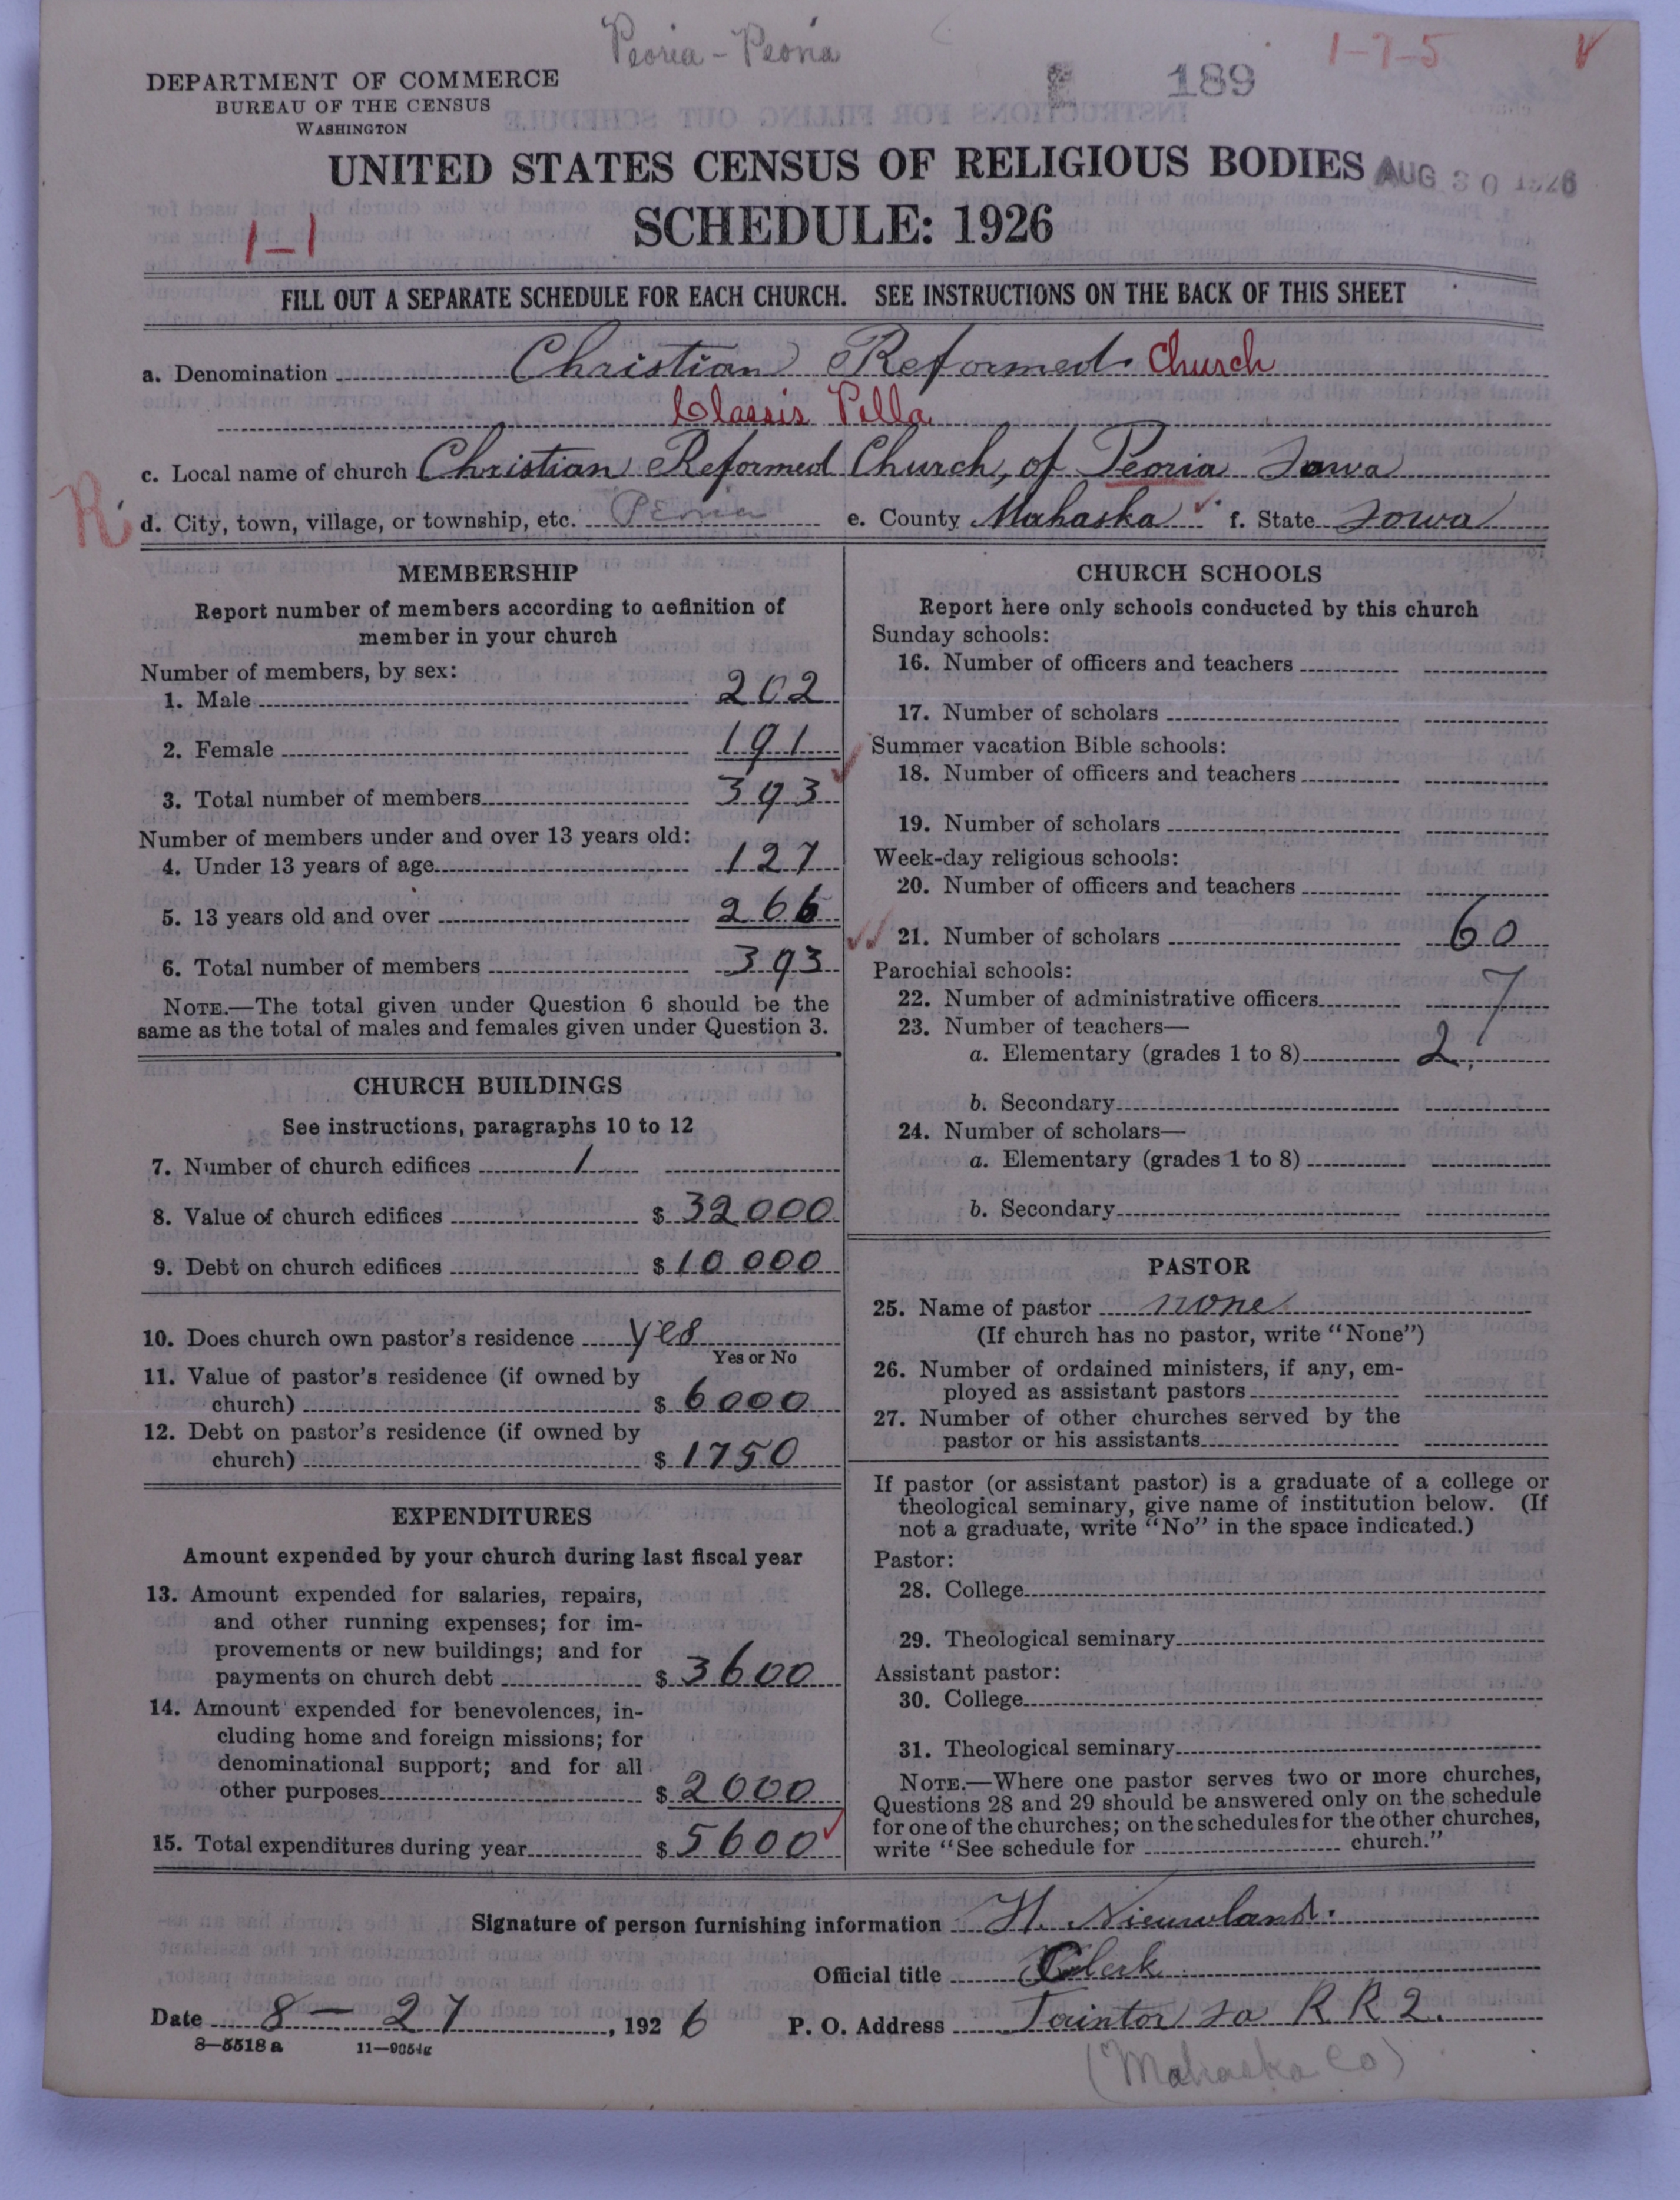 Peoria - Peoria
1-7-5
DEPARTMENT OF COMMERCE
BUREAU OF THE CENSUS
WASHINGTON
189
UNITED STATES CENSUS OF RELIGIOUS BODIES
AUG 30 1926
SCHEDULE: 1926
1-1
FILL OUT A SEPARATE SCHEDULE FOR EACH CHURCH. SEE INSTRUCTIONS ON THE BACK OF THIS SHEET
a. Denomination Christian Reformed Church
Classis Pella
c. Local name of church Christian Reformed Church, of Peoria Iowa
R
d. City, town, village, or township, etc. Peoria e. County Mahaska f. State Iowa
MEMBERSHIP
Report number of members according to definition of
member in your church
Number of members, by sex:
1. Male 202
2. Female 191
3. Total number of members 393
Number of members under and over 13 years old:
4. Under 13 years of age 127
5. 13 years old and over 266
6. Total number of members 393
NOTE.—The total given under Question 6 should be the
same as the total of males and females given under Question 3.
CHURCH BUILDINGS
See instructions, paragraphs 10 to 12
7. Number of church edifices 1
8. Value of church edifices $ 32000
9. Debt on church edifices $ 10 000
10. Does church own pastor's residence yes
Yes or No
11. Value of pastor's residence (if owned by
church) $ 6000
12. Debt on pastor's residence (if owned by
church) $ 1750
EXPENDITURES
Amount expended by your church during last fiscal year
13. Amount expended for salaries, repairs,
and other running expenses; for im-
provements or new buildings; and for
payments on church debt $ 3600
14. Amount expended for benevolences, in-
cluding home and foreign missions; for
denominational support; and for all
other purposes $ 2000
15. Total expenditures during year $ 5600
CHURCH SCHOOLS
Report here only schools conducted by this church
Sunday schools:
16. Number of officers and teachers
17. Number of scholars
Summer vacation Bible schools:
18. Number of officers and teachers
19. Number of scholars
Week-day religious schools:
20. Number of officers and teachers
21. Number of scholars 60
Parochial schools:
22. Number of administrative officers 7
23. Number of teachers—
a. Elementary (grades 1 to 8) 2
b. Secondary
24. Number of scholars—
a. Elementary (grades 1 to 8)
b. Secondary
PASTOR
25. Name of pastor none
(If church has no pastor, write "None")
26. Number of ordained ministers, if any, em-
ployed as assistant pastors
27. Number of other churches served by the
pastor or his assistants
If pastor (or assistant pastor) is a graduate of a college or
theological seminary, give name of institution below. (If
not a graduate, write "No" in the space indicated.)
Pastor:
28. College
29. Theological seminary
Assistant pastor:
30. College
31. Theological seminary
NOTE.—Where one pastor serves two or more churches,
Questions 28 and 29 should be answered only on the schedule
for one of the churches; on the schedules for the other churches,
write "See schedule for church."
Signature of person furnishing information H. Nieuwland.
Official title Clerk
Date 8 - 27, 1926 P. O. Address Taintor Ia R R 2.
8-5518a 11-9054g
(Mahaska Co)